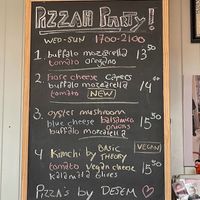 PIZZAH PARTY!
WED-SUN 1700-2100
1 buffalo mozzarella 13⁵⁰
tomato oregano
2. fiore cheese capers 14⁰⁰
buffalo mozzarella
tomato NEW
3. oyster mushroom
blue cheese balsamico onions 15⁵⁰
buffalo mozzarella
4 Kimchi by BASIC THEORY VEGAN
tomato vegan cheese 15⁵⁰
kalamata olives
PIZZA's by DESEM